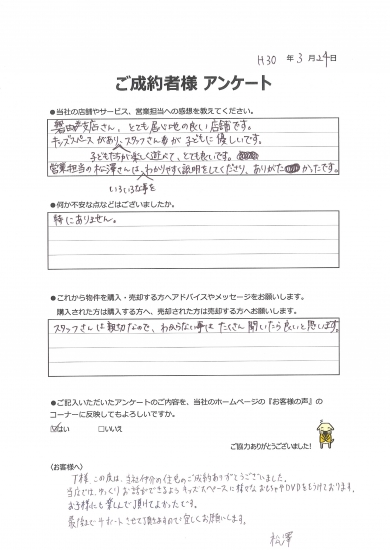 H30 年 3 月 24 日
ご成約者様 アンケート
●当社の店舗やサービス、営業担当への感想を教えてください。
磐田支店さん、とても居心地の良い店舗です。
キッズスペースがあり、スタッフさん者が子どもに優しいです。
子どもたちが楽しく遊べて、とても良いです。
営業担当の松澤さんは、わかりやすく説明をしてくださり、ありがたかたです。
いろいろな事を
●何か不安な点などはございましたか。
特にありません。
●これから物件を購入・売却する方へアドバイスやメッセージをお願いします。
購入された方は購入する方へ、売却された方は売却する方へお願いします。
スタッフさんは親切なので、わからない事はたくさん聞いたら良いと思います。
●ご記入いただいたアンケートのご内容を、当社のホームページの『お客様の声』の
コーナーに反映してもよろしいですか。
☑はい □いいえ
ご協力ありがとうございました!
(お客様へ)
T様 この度は、当社仲介の住宅のご成約ありがとうございました。
当店では、ゆっくりお話ができるようキッズスペースに様々なおもちゃやDVDをもうけております。
お子様にも楽しんで頂けてよかったです。
最後までサポートさせて頂きますので宜しくお願いします。
松澤